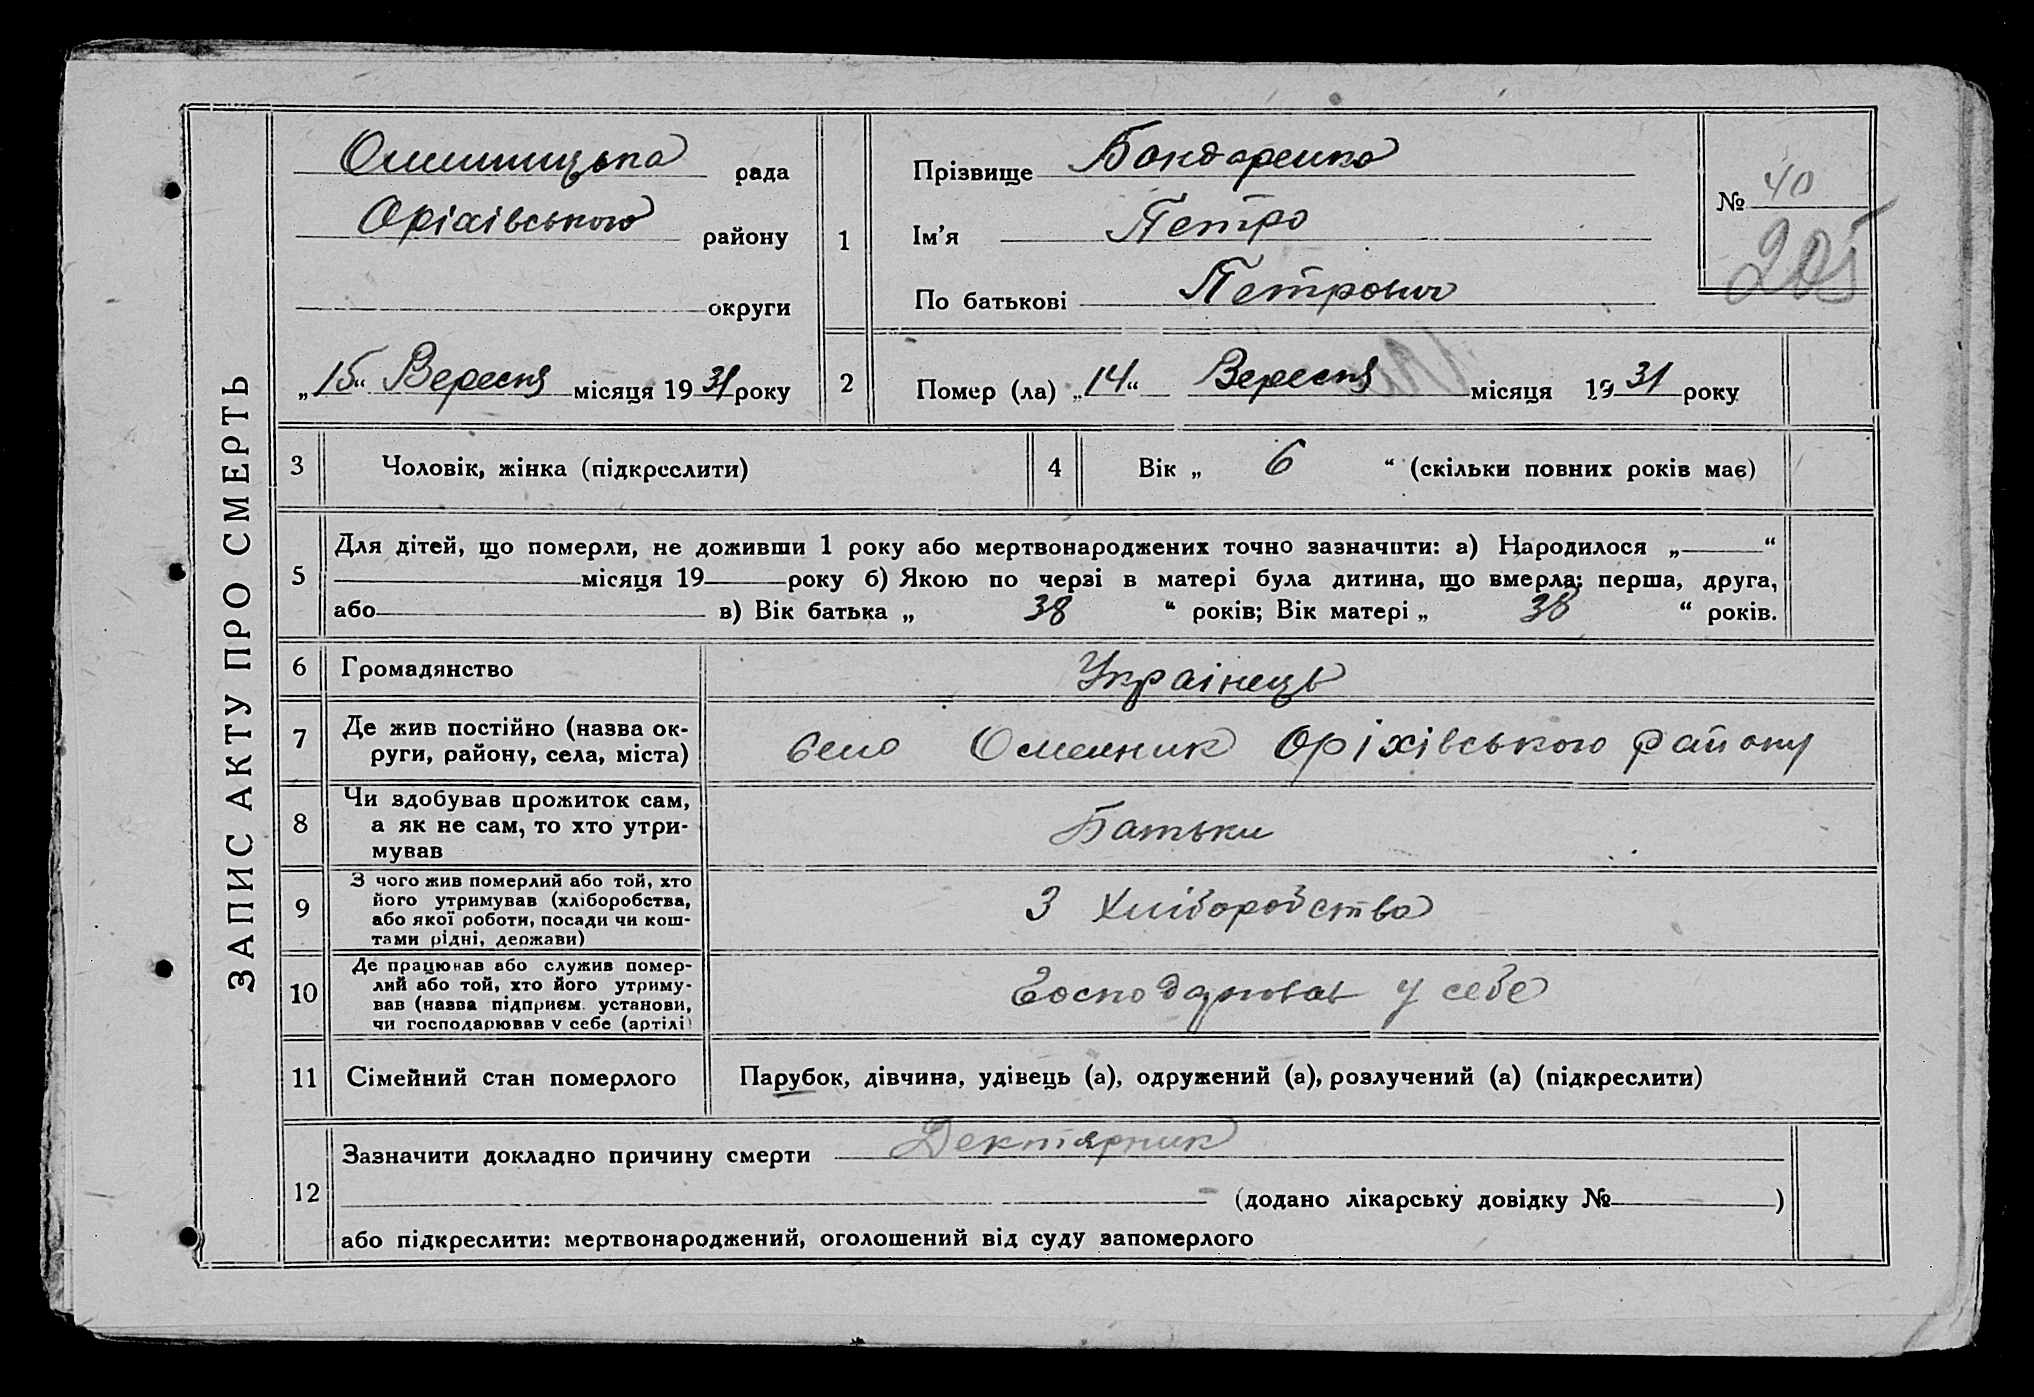 ЗАПИС АКТУ ПРО СМЕРТЬ
Омельницька рада
Оріхівського району
округи
„15“ Вересня місяця 1931 року
1
Прізвище Бондаренко
Ім'я Петро
По батькові Петрович
№ 40
205
2
Помер (ла) „14“ Вересня місяця 1931 року
3 Чоловік, жінка (підкреслити)
4 Вік „ 6 “ (скільки повних років має)
5
Для дітей, що померли, не доживши 1 року або мертвонароджених точно зазначити: а) Народилося „ “
місяця 19 року б) Якою по черзі в матері була дитина, що вмерла; перша, друга,
або в) Вік батька „ 38 “ років; Вік матері „ 38 “ років.
6 Громадянство Українець
7 Де жив постійно (назва ок-
руги, району, села, міста)
село Омельник Оріхівського району
8 Чи здобував прожиток сам,
а як не сам, то хто утри-
мував
Батьки
9 З чого жив померлий або той, хто
його утримував (хліборобства,
або якої роботи, посади чи кош-
тами рідні, держави)
З хліборобства
10 Де працював або служив помер-
лий або той, хто його утриму-
вав (назва підприєм. установи,
чи господарював у себе (артілі)
Господарював у себе
11 Сімейний стан померлого Парубок, дівчина, удівець (а), одружений (а), розлучений (а) (підкреслити)
12 Зазначити докладно причину смерти Дектярник
(додано лікарську довідку № )
або підкреслити: мертвонароджений, оголошений від суду запомерлого